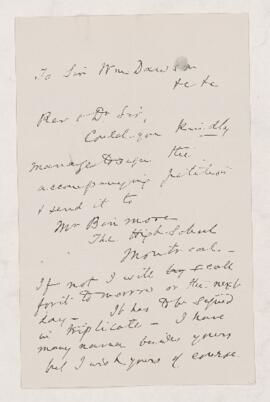 To Sir Wm Dawson
&c &c
Rev & Dr Sir,
Could you kindly
manage to sign the
accompanying petition
& send it to
Mr Binmore
The High School
Montreal. -
If not I will try & call
for it to morrow or the next
day - It has to be signed
in triplicate - I have
many names besides yours
but I wish yours of course